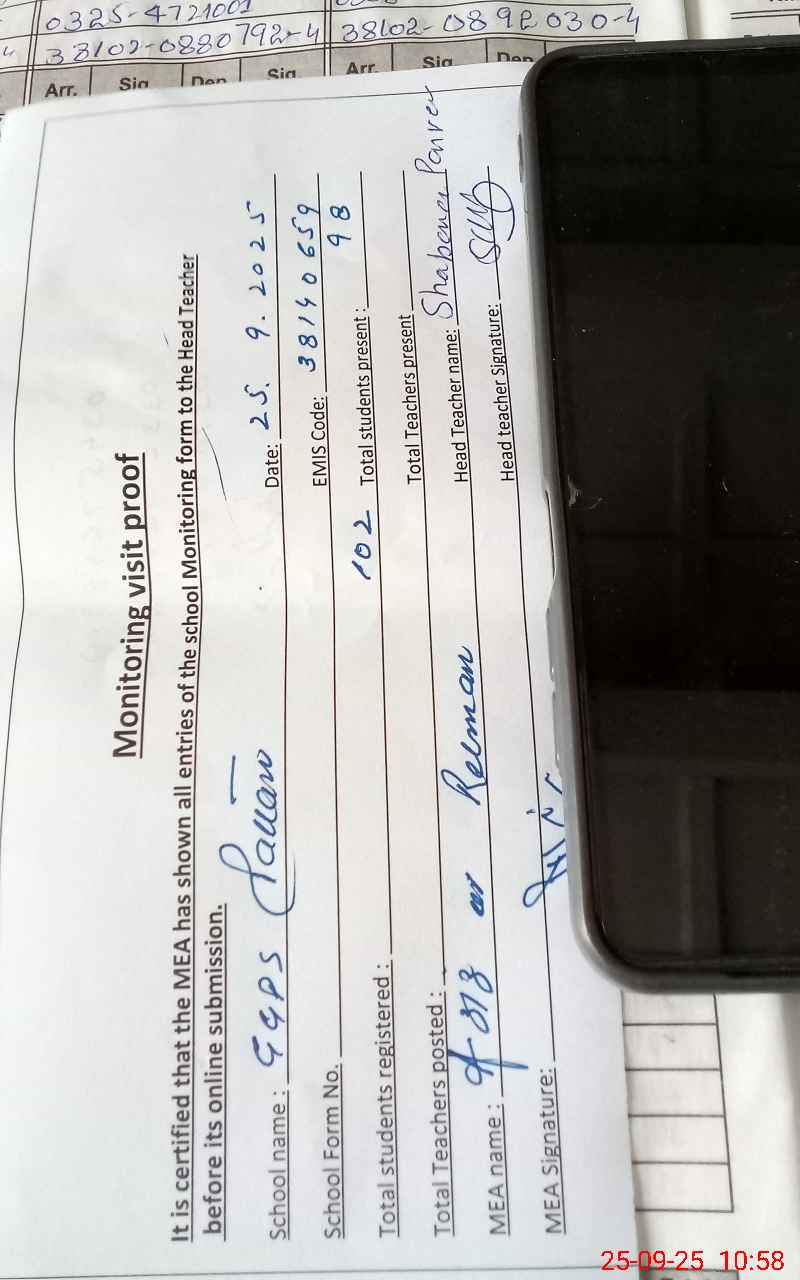 0325-4721001
38102-0880792-4 38102-0892030-4
Arr. Sig Dep Sig Arr. Sig Dep
Monitoring visit proof
It is certified that the MEA has shown all entries of the school Monitoring form to the Head Teacher
before its online submission.
School name : GGPS Date: 25. 9. 2025
School Form No. EMIS Code: 38140659
Total students registered : 102 Total students present : 98
Total Teachers posted : Total Teachers present
MEA name : ur Rehman Head Teacher name: Shabana Parveen
MEA Signature: Head teacher Signature:
25-09-25 10:58